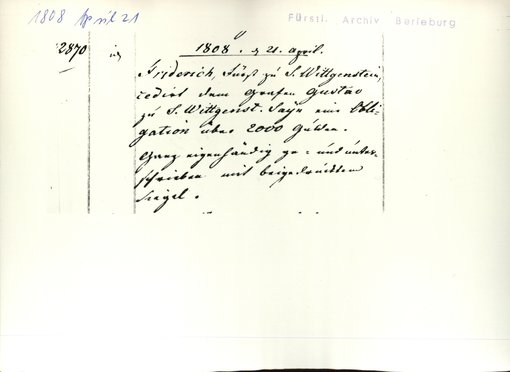 1808 April 21
Fürstl. Archiv Berleburg
2870
1808. d 21. April.
Friderich, Fürst zu S. Wittgenstein,
cedirt dem Grafen Gustav
zu S. Wittgenst. Sayn eine Obli-
gation über 2000 Gulden.
Ganz eigenhändig ge- und unter-
schrieben mit beigedrücktem
Siegel.